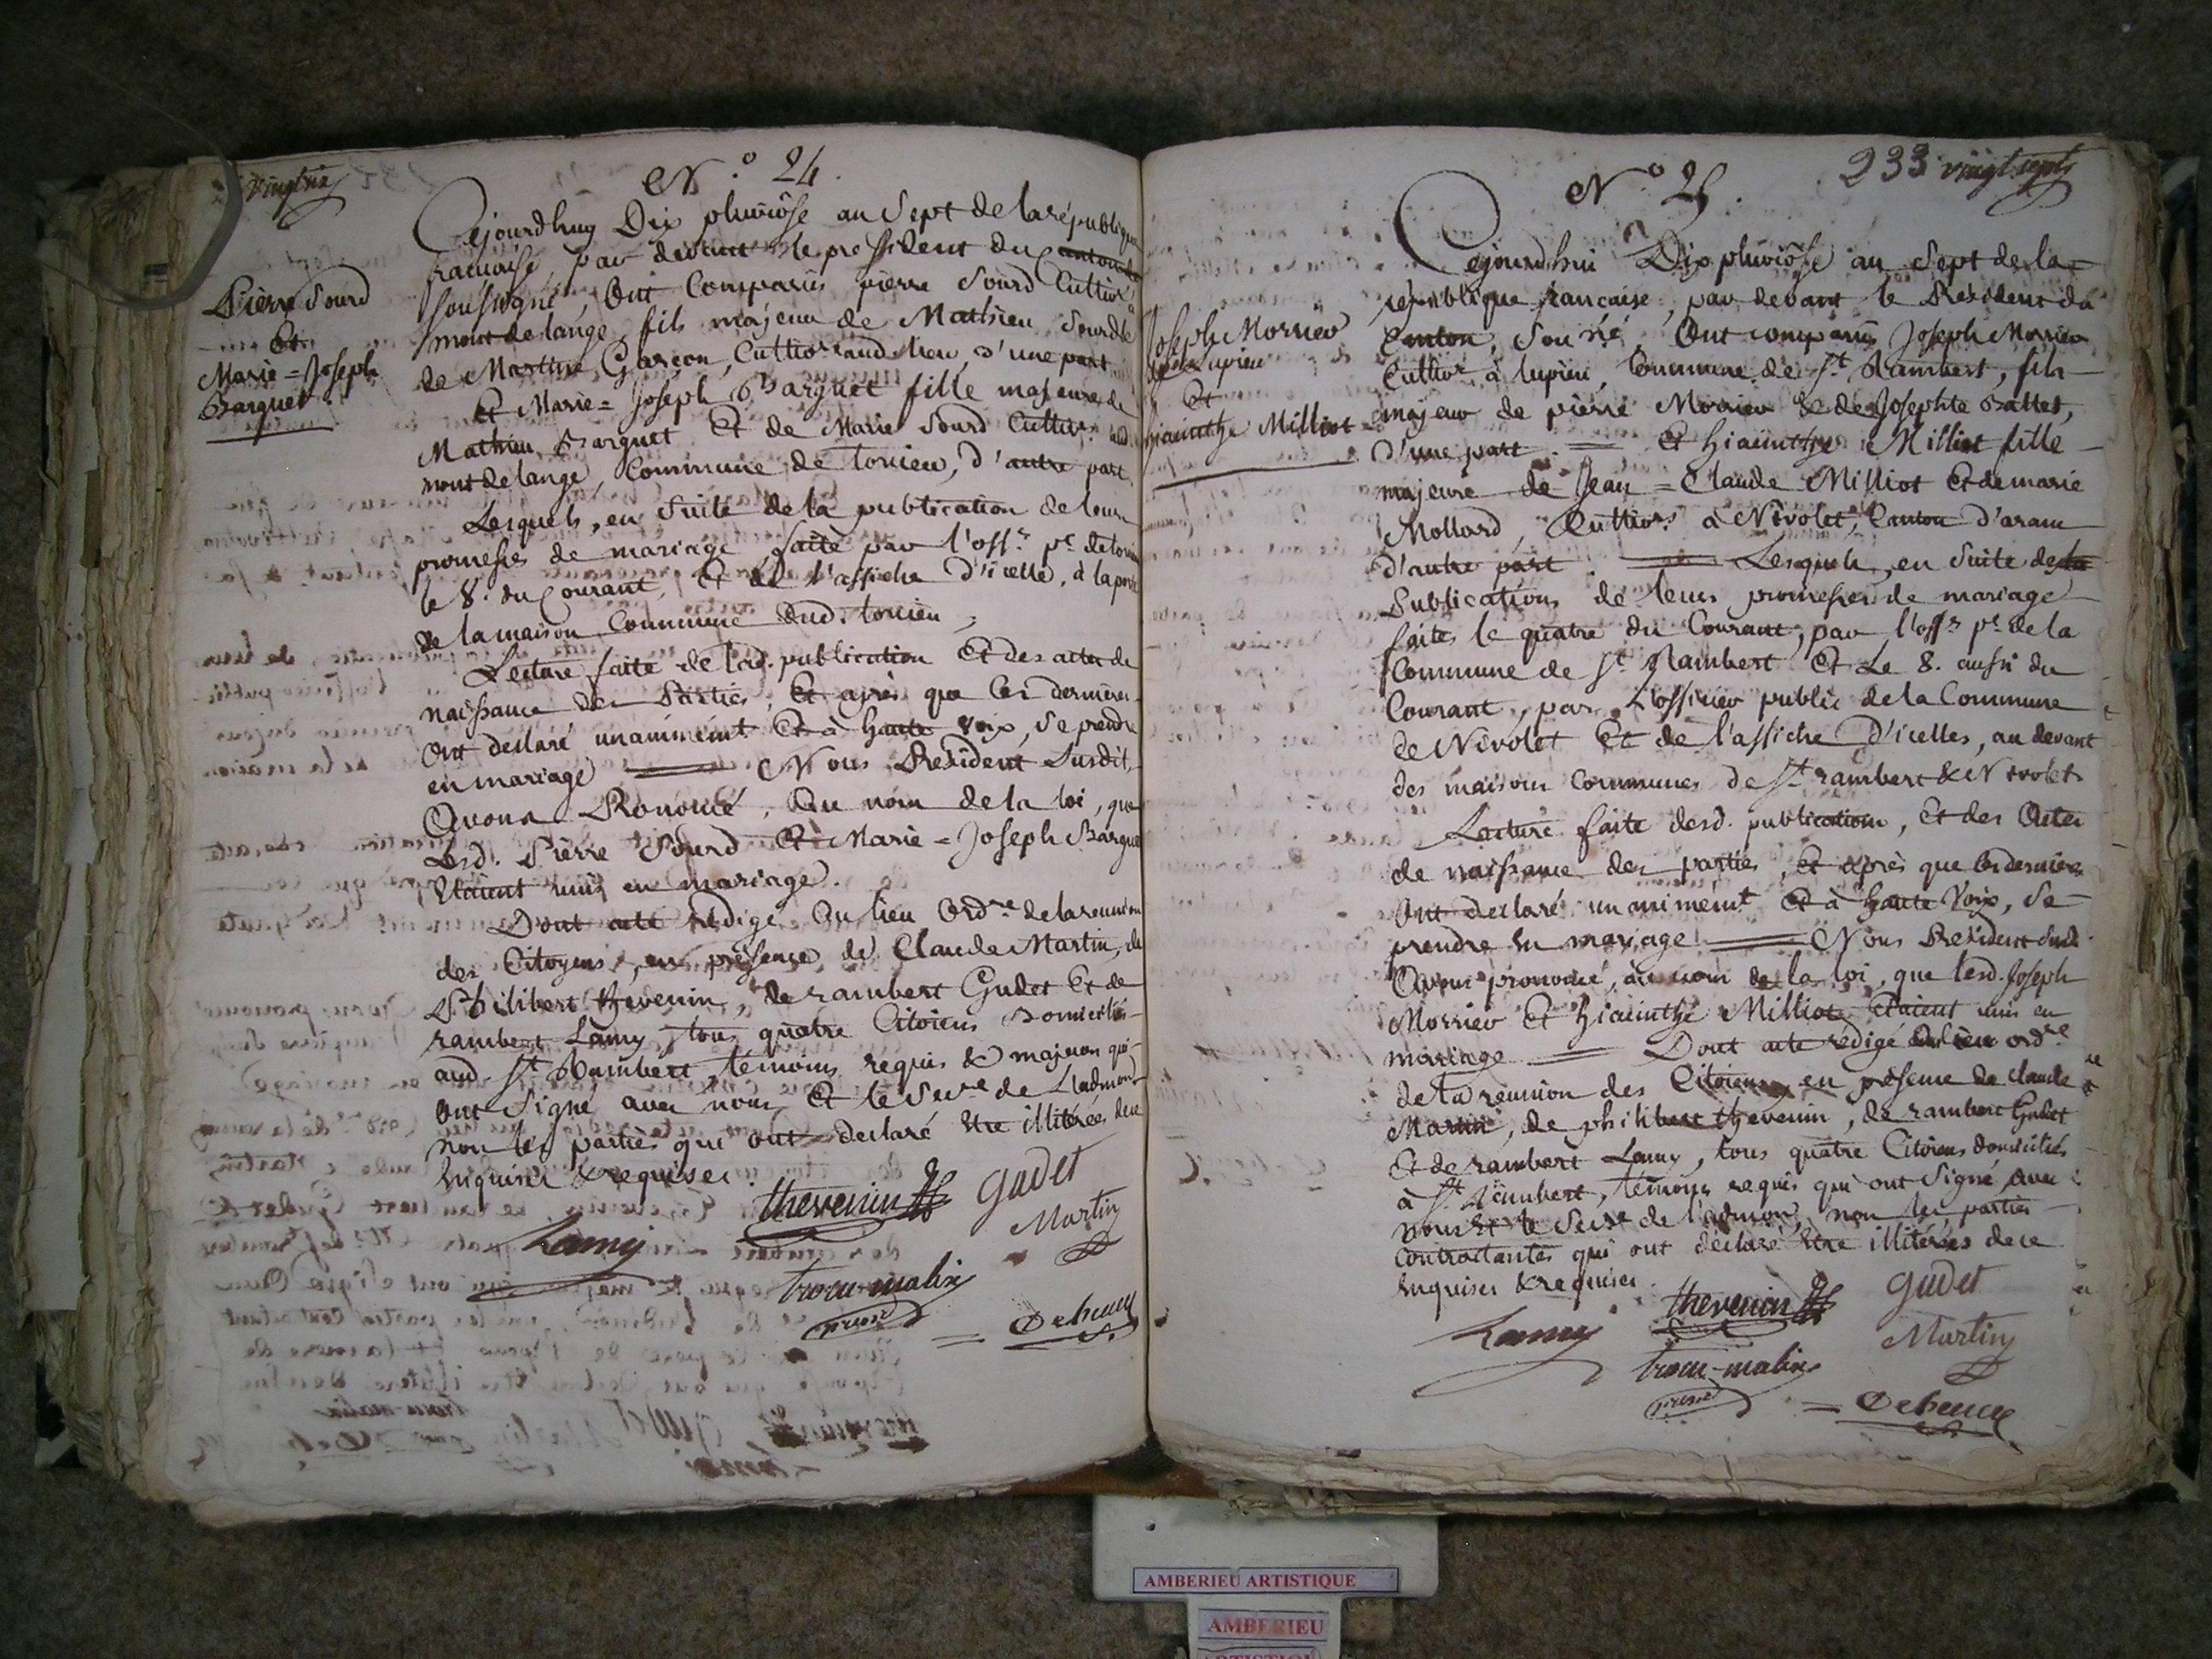 vingt six
N.° 24.
Pierre Sourd
Et
Marie = Joseph
Barquet
Cejourdhuy Dix pluviôse an Sept de la république
francaise, par devant le president du Canton
soussigné, Ont Comparus pierre Sourd Cultiv.r à
mont de lange, fils majeur de Mathieu Sourd &
de Martine Garçon, Cultiv.rs aud. lieu, d'une part
Et Marie = Joseph Barquet fille majeure de
Mathieu Barquet Et de Marie Sourd Cultiv.rs aud.
mont de lange, Commune de torcieu, d'autre part.
Lesquels, en Suite de la publication de leurs
promesses de mariage, faite par l'off.r p.c de torcieu
le 8. du Courant, Et de l'affiche d'icelle, à la porte
de la maison Commune dud. torcieu,
Lecture faite de lad. publication Et des actes de
naissance des Parties, Et après que les dernières
Ont declaré unanimem.t Et à haute voix, se prendre
en mariage = Nous President Susdit,
Avons Prononcé, Au nom de la loi, que
Lesd. Pierre Sourd Et Marie = Joseph Barquet
Etaient unis en mariage.
Dont acte redigé Au lieu Ord.re de la reunion
des Citoyens, en présence de Claude Martin, de
Philibert thevenin, de rambert Gudet Et de
rambert Lamy, tous quatre Citoiens Domiciliés
aud. St. Rambert, témoins requis & majeurs qui
Ont Signé avec nous Et le Sec.re de L'admon.
non les parties qui ont declaré Etre illitérées de ce
Enquises & requises.
thevenin gudet
Lamy Martin
trocu-malix
presid.
= Debeney
233 vingt sept
N.° 25.
Joseph Morrier
de Lupieu
Et
hiacinthe Milliot
Cejourdhui Dix pluviôse an Sept de la
république francaise, par devant le President du
Canton, Sousigné, Ont comparus Joseph Morrier
Cultiv.r à lupieu, Commune de St. Rambert, fils
majeur de pierre Morrier & de Josephte Ballet,
d'une part. = Et hiacinthe Milliot fille
majeure de Jean = Claude Milliot Et de marie
Mollard, Cultiv.rs à Nivolet, Canton d'aram
d'autre part = Lesquels, en Suite des
Publications de leurs promesses de mariage
faites le quatre du Courant, par l'off.r p.c de la
Commune de St. Rambert Et Le 8. aussi du
Courant, par L'officier public de la Commune
de Nivolet Et de l'affiche d'icelles, au devant
des maisons Communes de St. rambert & Nivolet.
Lecture faite desd. publications, Et des Actes
de naissance des parties, Et après que les dernières
Ont declaré unanimem.t Et à haute Voix, Se
prendre En mariage = Nous President Susd.
Avons prononcé, au nom de la loi, que lesd. Joseph
Morrier Et hiacinthe Milliot Etaient unis en
mariage = Dont acte rédigé au lieu ord.re
de la reunion des Citoiens, en présence de Claude
Martin, de philibert thevenin, de rambert Gudet
Et de rambert Lamy, tous quatre Citoiens domiciliés
à St. Rambert, témoins requis qui ont Signé avec
nous Et le Sec.re de l'admon, non les parties
Contractantes qui ont déclaré Etre illitérées de ce
Enquises & requises.
thevenin gudet
Lamy Martin
trocu-malix
presid.
= Debeney
AMBERIEU ARTISTIQUE
AMBERIEU
ARTISTIQUE